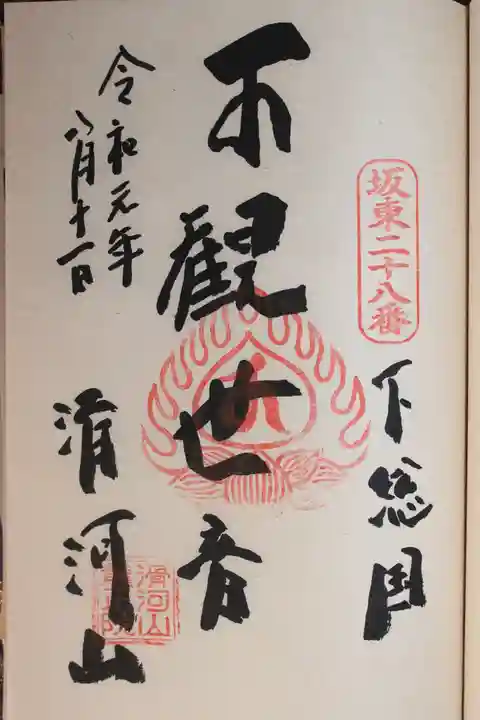 坂東二十八番
下総国
觀世音
令和元年
八月十一日
滑河山
滑河山